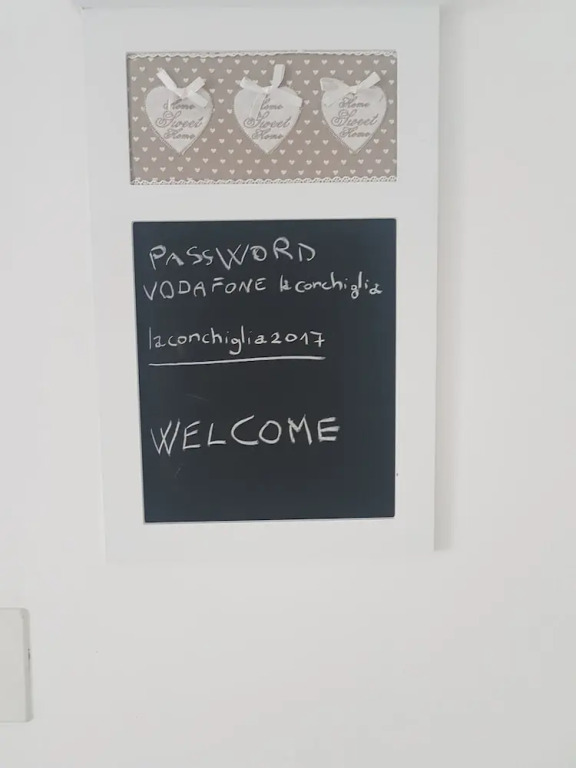 Home
Sweet
Home
Home
Sweet
Home
Home
Sweet
Home
PASSWORD
VODAFONE laconchiglia
laconchiglia2017
WELCOME